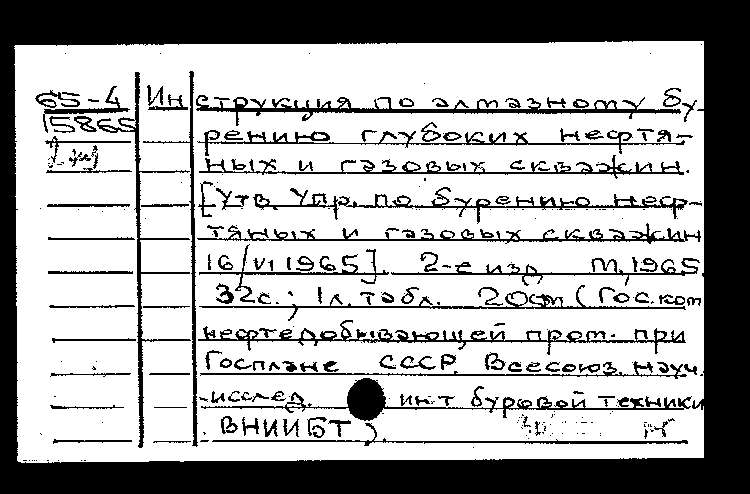 65-4 Инструкция по алмазному бу-
15865 рению глубоких нефтя-
2 ных и газовых скважин.
[Утв. Упр. по бурению неф-
тяных и газовых скважин
16/VI 1965]. 2-е изд М.,1965.
32с.; 1л. табл. 20см (Гос.ком
нефтедобывающей пром. при
Госплане СССР. Всесоюз. науч.
-исслед. ин-т буровой техники
. ВНИИБТ).